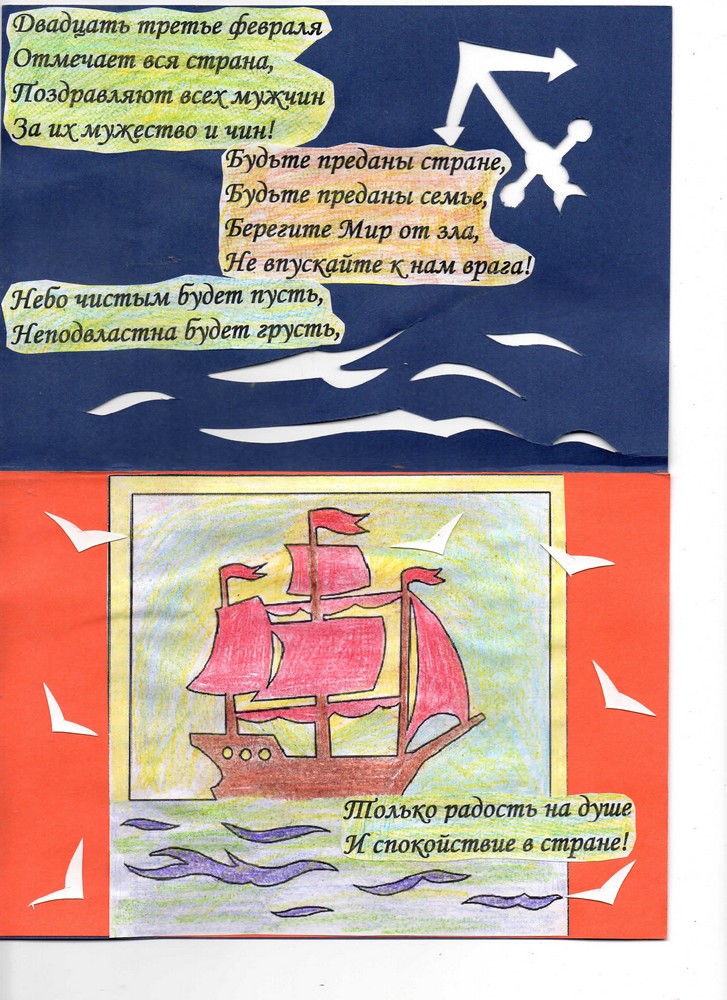 Двадцать третье февраля
Отмечает вся страна,
Поздравляют всех мужчин
За их мужество и чин!
Будьте преданы стране,
Будьте преданы семье,
Берегите Мир от зла,
Не впускайте к нам врага!
Небо чистым будет пусть,
Неподвластна будет грусть,
Только радость на душе
И спокойствие в стране!